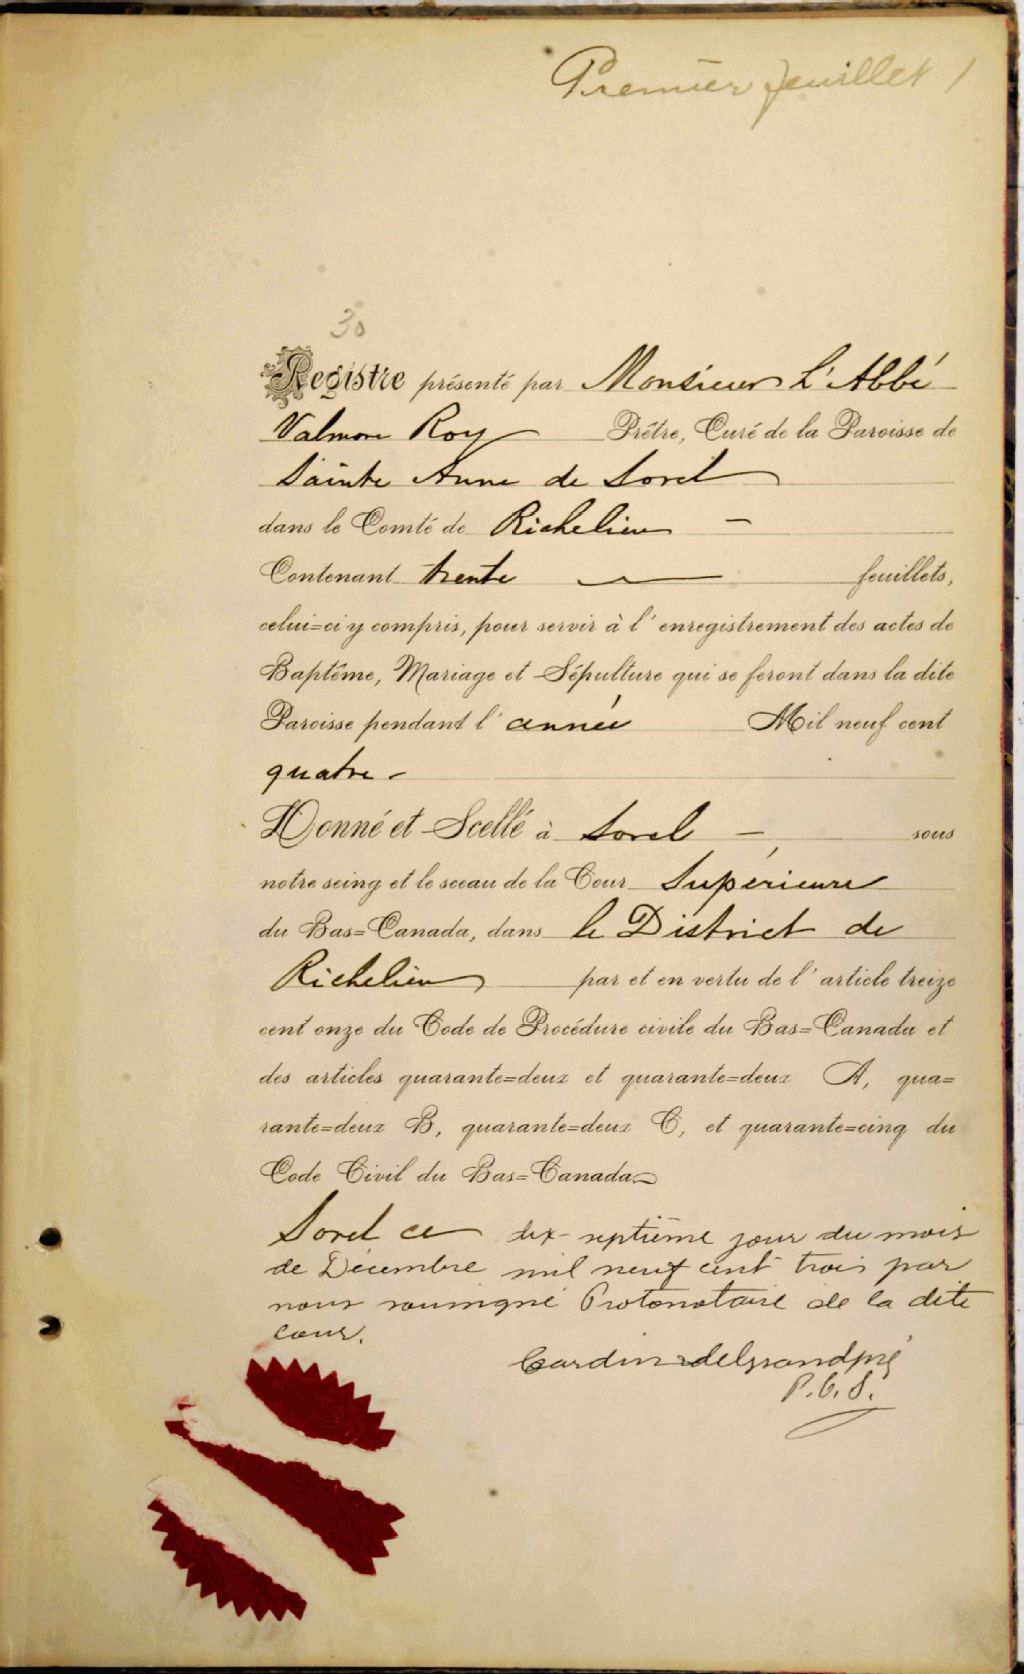 Premier feuillet 1
30
Registre présenté par Monsieur L'Abbé
Valmore Roy Prêtre, Curé de la Paroisse de
Sainte Anne de Sorel
dans le Comté de Richelieu -
Contenant trente feuillets,
celui=ci y compris, pour servir à l'enregistrement des actes de
Baptême, Mariage et Sépulture qui se feront dans la dite
Paroisse pendant l'année Mil neuf cent
quatre -
Donné et Scellé à Sorel - sous
notre seing et le sceau de la Cour Supérieure
du Bas=Canada, dans le District de
Richelieu par et en vertu de l'article treize
cent onze du Code de Procédure civile du Bas=Canada et
des articles quarante=deux et quarante=deux A, qua=
rante=deux B, quarante=deux C, et quarante=cinq du
Code Civil du Bas=Canada
Sorel ce dix-septième jour du mois
de Décembre mil neuf cent trois par
nous soussigné Protonotaire de la dite
cour.
Cardin & deGrandpré
P.C.S.